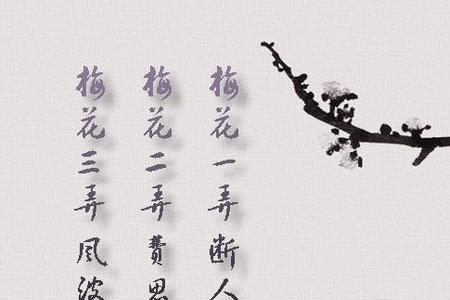 梅花一弄断人
梅花二弄費思
梅花三弄風波